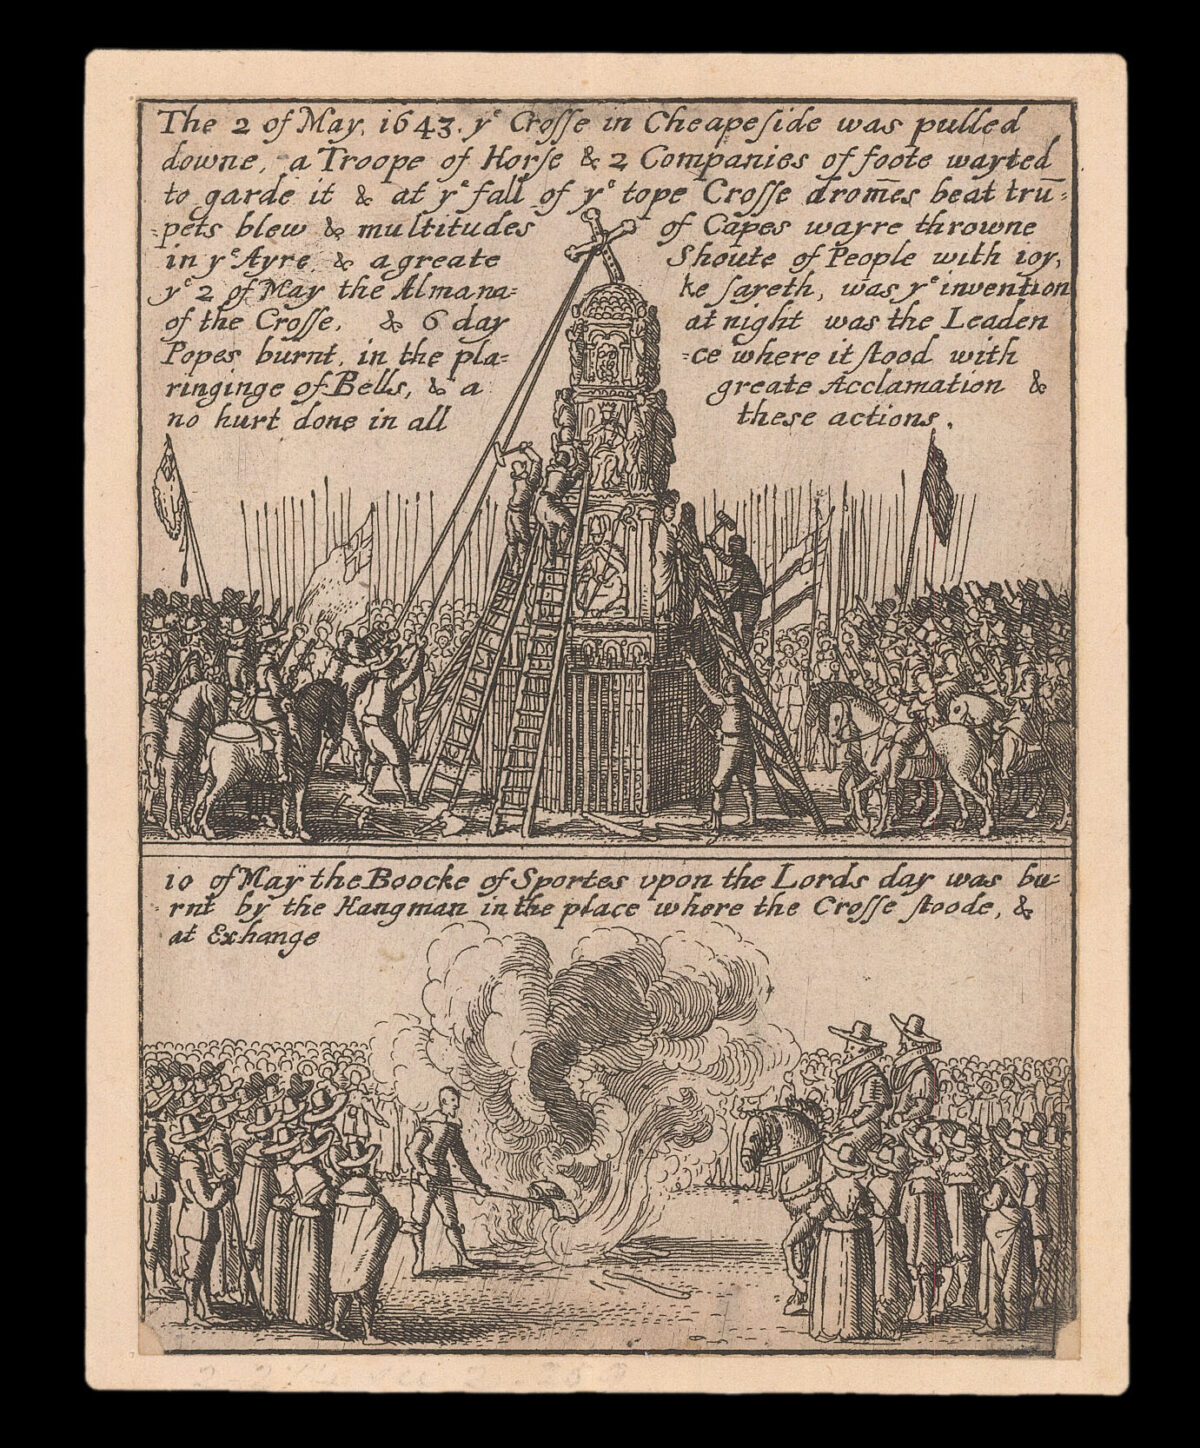 The 2 of May, 1643. yᵉ Croſſe in Cheapeſide was pulled
downe, a Troope of Horſe & 2 Companies of foote wayted
to garde it & at yᵉ fall of yᵉ tope Croſſe dromēs beat trū=
=pets blew & multitudes of Capes wayre throwne
in yᵉ Ayre, & a greate Shoute of People with ioy,
yᵉ 2 of May the Almana= ke ſayeth, was yᵉ invention
of the Croſſe, & 6 day at night was the Leaden
Popes burnt, in the pla= =ce where it ſtood with
ringinge of Bells, & a greate Acclamation &
no hurt done in all these actions.
10 of May the Boocke of Sportes vpon the Lords day was bu=
rnt by the Hangman in the place where the Croſſe ſtoode, &
at Exhange